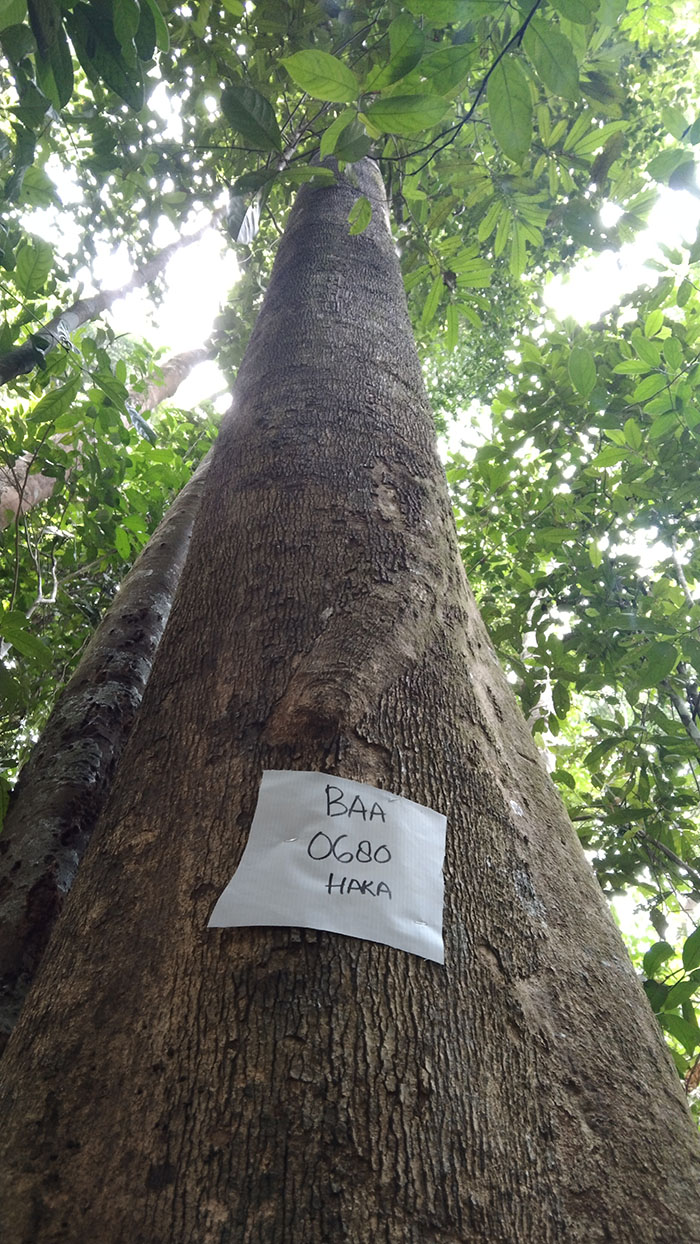 BAA
0680
HAKA